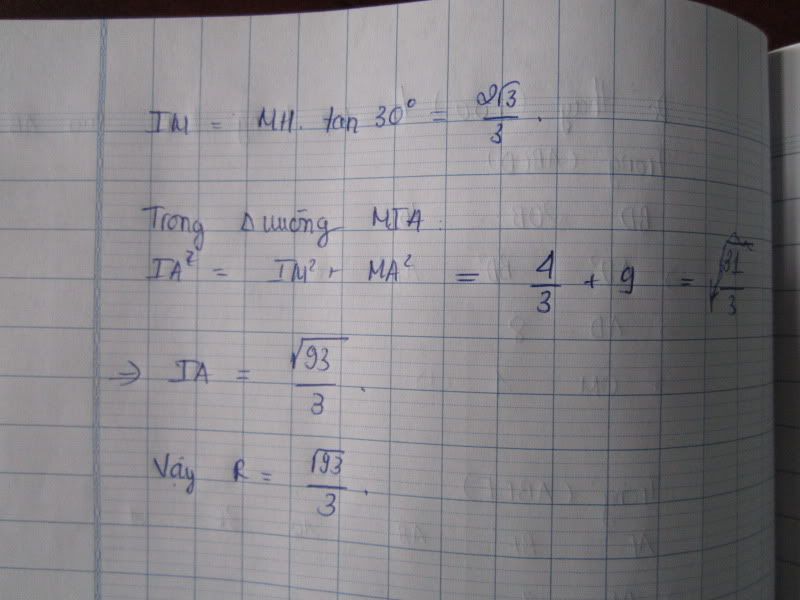 IM = MH. tan 30° = 2√3/3.
Trong Δ vuông MIA:
IA² = IM² + MA² = 4/3 + 9 = √31/3
⇒ IA = √93/3.
Vậy R = √93/3.